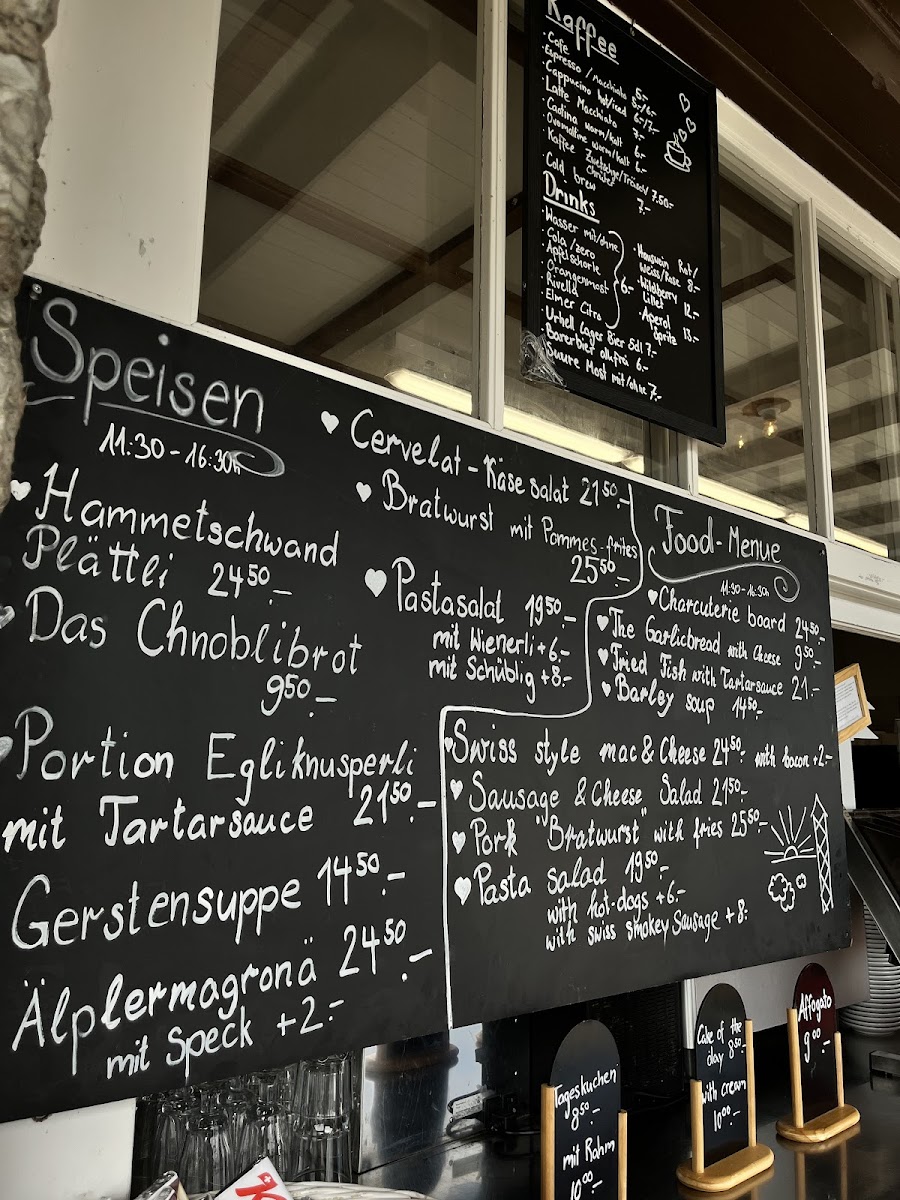 Kaffee
· Cafe 5.-
· Espresso / Macchiato 5.-/6.-
· Cappucino hot/iced 6.-/7.-
· Latte Macchiato 7.-
· Caotina warm/kalt 6.-
· Ovomaltine warm/kalt 6.-
· Kaffee Zwetschge/Träsch/ 7.50.-
Chrüter
· Cold brew 7.-
Drinks
· Wasser mit/ohne
· Cola/zero
· Apfelschorle
· Orangenmost
· Rivella
· Elmer Citro
6.-
· Urhell Lager Bier 5dl 7.-
· Baarerbier alkfrei 6.-
· Suure Most mit/ohne 7.-
· Hauswein Rot/
Weiss/Rose 8.-
· Wildberry
Lillet 12.-
· Aperol
Spritz 13.-
Speisen
11:30 - 16:30h
Hammetschwand
Plättli 24.50.-
Das Chnoblibrot
9.50.-
Portion Egliknusperli
mit Tartarsauce 21.50.-
Gerstensuppe 14.50.-
Älplermagronä 24.50.-
mit Speck +2.-
Cervelat-Käse salat 21.50.-
Bratwurst mit Pommes-frites
25.50.-
Pastasalat 19.50.-
mit Wienerli +6.-
mit Schüblig +8.-
Food-Menue
11:30-16:30h
Charcuterie board 24.50.-
The Garlicbread with Cheese 9.50.-
Fried Fish with Tartarsauce 21.-
Barley soup 14.50.-
Swiss style mac & Cheese 24.50.- with bacon +2.-
Sausage & Cheese Salad 21.50.-
Pork "Bratwurst" with fries 25.50.-
Pasta salad 19.50.-
with hot-dogs +6.-
with swiss smokey Sausage +8.-
Tageskuchen
8.50.-
mit Rahm
10.00.-
Cake of the
day 8.50.-
with cream
10.00.-
Affogato
9.00.-